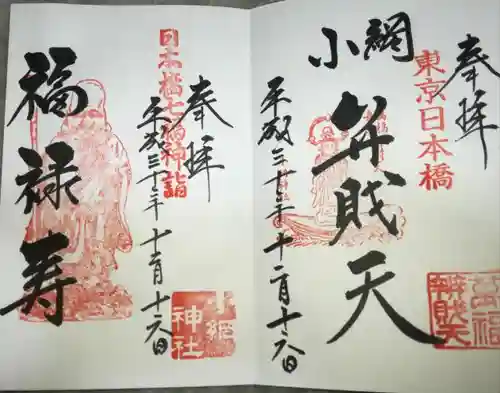 奉拝
東京日本橋
小網
弁財天
平成三十年十二月十六日
萬福
辨財天
奉拝
日本橋七福神詣
平成三十年十二月十六日
福禄寿
小網
神社